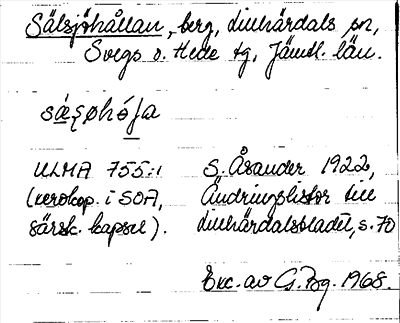 Sälsjöhållan, berg, Lillhärdals sn,
Svegs o. Hede tg, Jämtl. län.
ULMA 755:1 S. Åsander 1922,
(xerokop. i SOA, Ändringslistor till
särsk. kapsel). Lillhärdalsbladet, s. 70
Exc. av G. Pg. 1968.